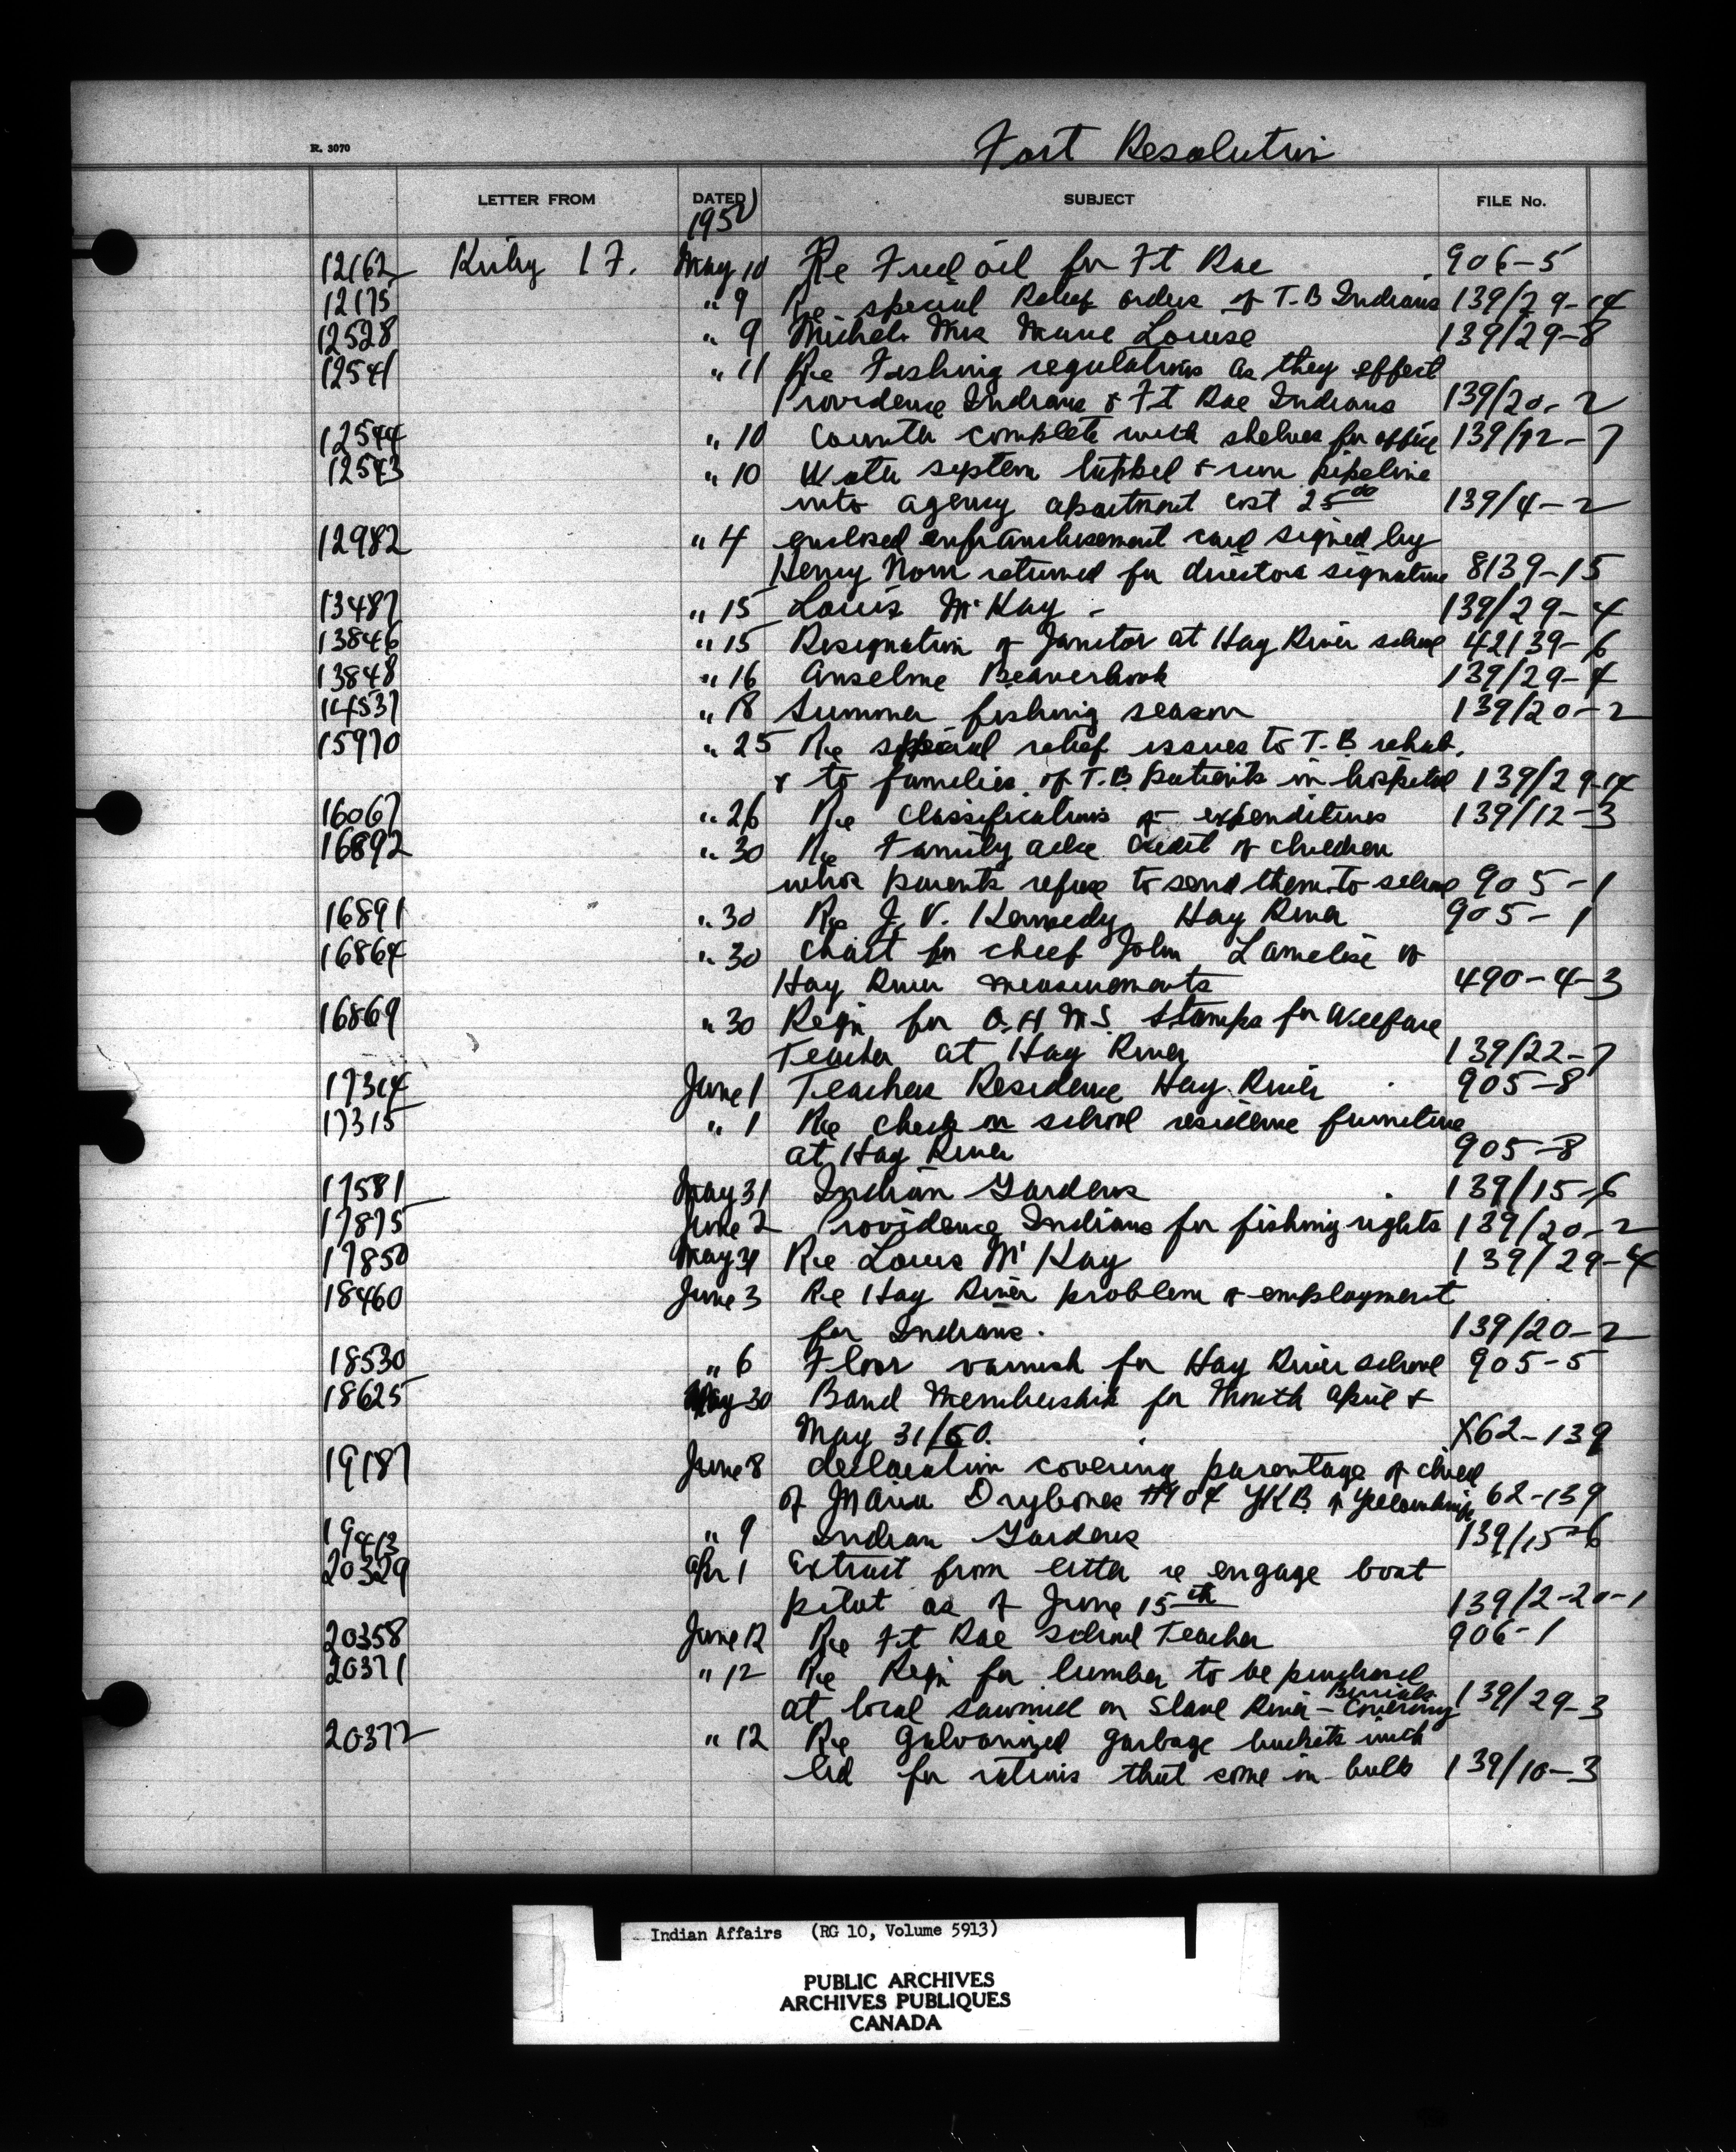 R. 3070
Fort Resolution
LETTER FROM DATED SUBJECT FILE No.
1950
12162 Kirby I F. May 10 Re Fuel oil for Ft Rae 906-5
12175 " 9 Re special Relief orders of T.B Indians 139/29-14
12528 " 9 Michel Mrs Marie Louise 139/29-8
12541 " 11 Re Fishing regulations as they effect
Providence Indians & Ft Rae Indians 139/20-2
12544 " 10 Counter complete with shelves for office 139/12-7
12543 " 10 Water system & run pipeline
into agency apartment cost 25 00 139/4-2
12982 " 4 enclosed enfranchisement card signed by
Henry Norn returned for directors signature 8139-15
13487 " 15 Louis McKay - 139/29-4
13846 " 15 Resignation of Janitor at Hay River school 42139-6
13848 " 16 Anselme Beaverhook 139/29-4
14537 " 18 Summer fishing season 139/20-2
15970 " 25 Re special relief issues to T.B. rehab.
& to families of T.B. patients in hospital 139/29-14
16067 " 26 Re Classifications of expenditures 139/12-3
16892 " 30 Re Family Credit of children
whos parents refuse to send them to school 905-1
16891 " 30 Re J. V. Kennedy Hay River 905-1
16864 " 30 Chart for chief John Lamelise of
Hay River measurements 490-4-3
16869 " 30 Reqn for O.H.M.S. Stamps for Welfare
Teacher at Hay River 139/22-7
17314 June 1 Teachers Residence Hay River 905-8
17315 " 1 Re check on school residence furniture
at Hay River 905-8
17581 May 31 Indian Gardens 139/15-6
17875 June 2 Providence Indians for fishing rights 139/20-2
17850 May 31 Re Louis McKay 139/29-4
18460 June 3 Re Hay River problem of employment
for Indians. 139/20-2
18530 " 6 Floor varnish for Hay River school 905-5
18625 May 30 Band Membership for Month April &
May 31/50. X62-139
19187 June 8 declaration covering parentage of child
of Maria Drybones #104 YKB of Yellowknife 62-139
19413 " 9 Indian Gardens 139/15-6
20329 Apr 1 Extract from letter re engage boat
pilot as of June 15th 139/2-20-1
20358 June 12 Re Ft Rae School Teacher 906-1
20371 " 12 Re Reqn for lumber to be purchased
at local sawmill on Slave River - Covering Burials 139/29-3
20372 " 12 Re Galvanized garbage buckets with
lid for rations that come in bulk 139/10-3
Indian Affairs (RG 10, Volume 5913)
PUBLIC ARCHIVES
ARCHIVES PUBLIQUES
CANADA